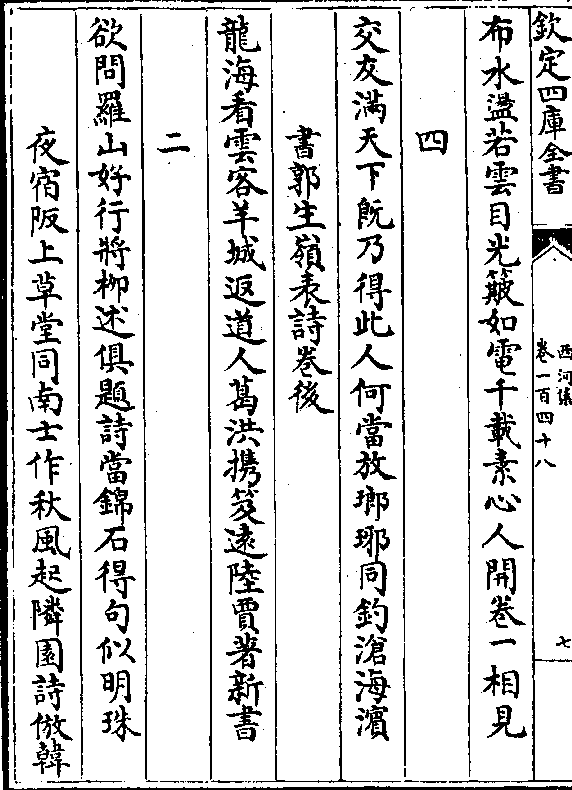 欽定四庫全書
西河集
卷一百四十八
七
布水盪若雲目光簸如電千載素心人開卷一相見
四
交友滿天下旣乃得此人何當放瑯琊同釣滄海濱
書郭生嶺表詩卷後
龍海看雲客羊城返道人葛洪携笈遠陸賈著新書
二
欲問羅山好行將柳述俱題詩當錦石得句似明珠
夜宿阪上草堂同南士作秋風起隣園詩倣韓